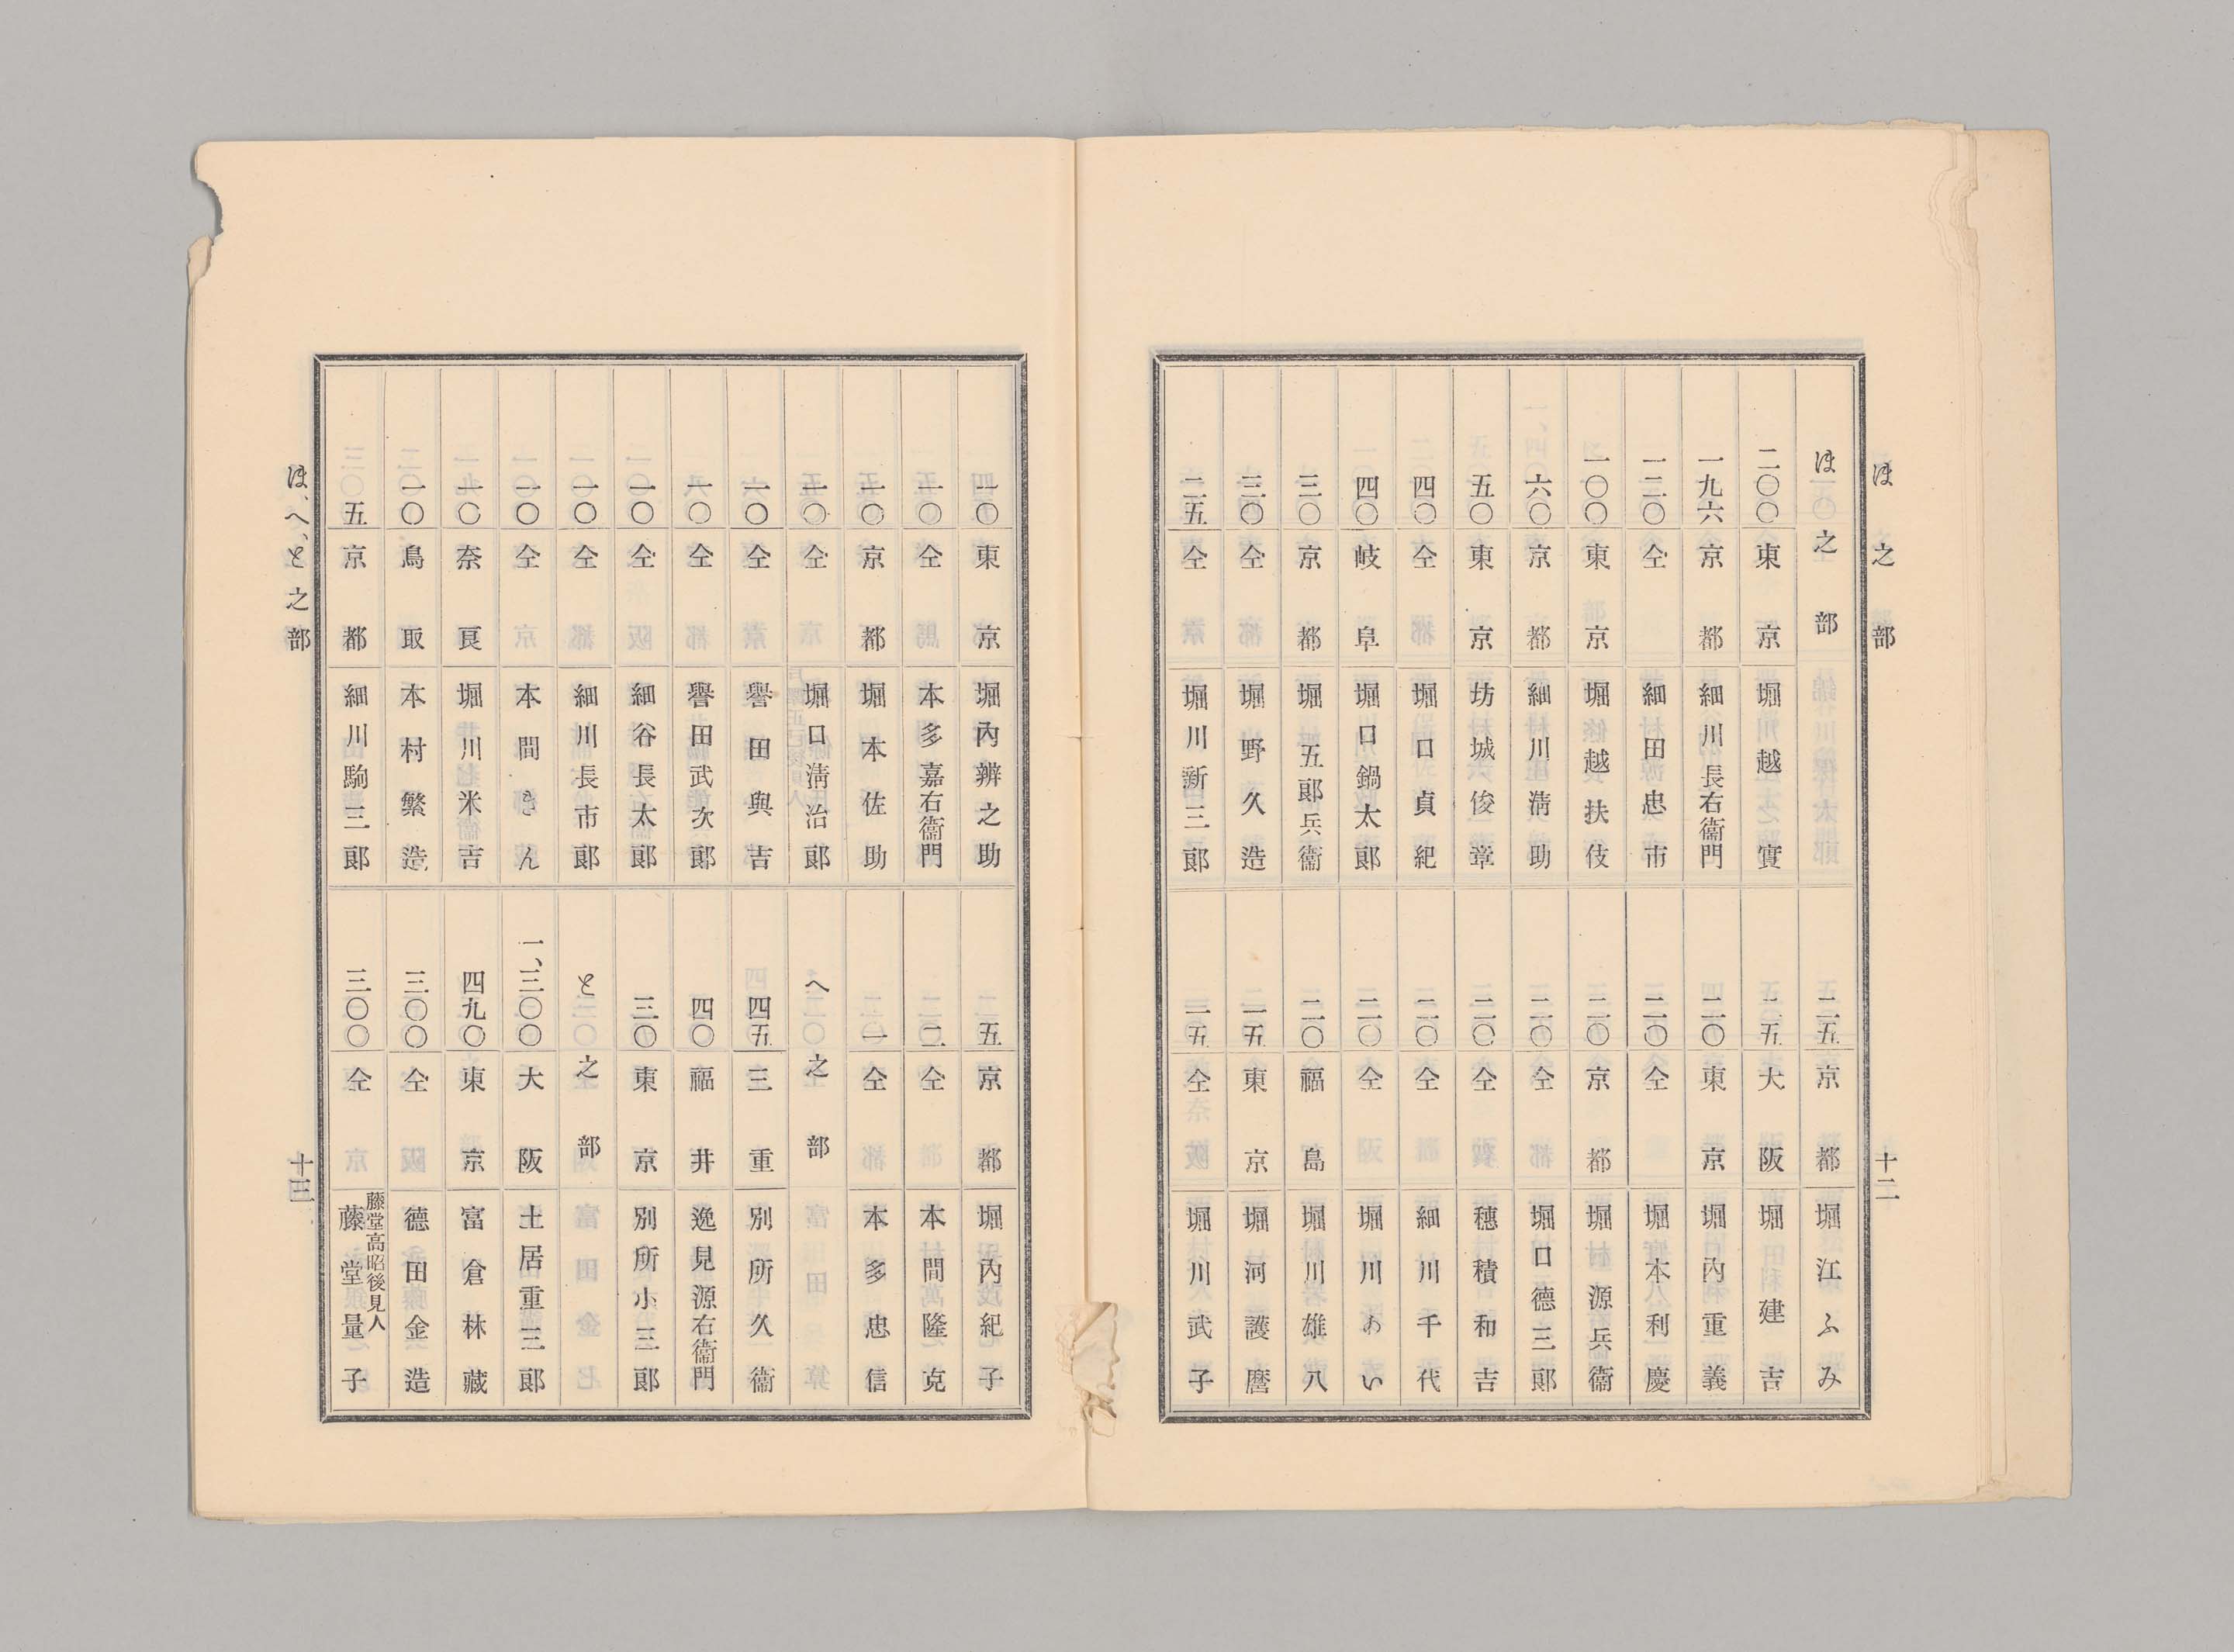 ほ之部
十二
ほ之部
二〇〇 東京 堀越實
一九六 京都 細川長右衞門
一二〇 仝 細田忠市
一〇〇 東京 堀越扶伎
六〇 京都 細川淸助
五〇 東京 坊城俊章
四〇 仝 堀口貞紀
四〇 岐阜 堀口鍋太郞
三〇 京都 堀五郞兵衞
三〇 仝 堀野久造
二五 仝 堀川新三郞
二五 京都 堀江ふみ
二五 大阪 堀建吉
二〇 東京 堀內重義
二〇 仝 堀本利慶
二〇 京都 堀源兵衞
二〇 仝 堀口德三郞
二〇 仝 穗積和吉
二〇 仝 細川千代
二〇 仝 堀川あい
二〇 福島 堀川雄八
一五 東京 堀河護麿
一五 仝 堀川武子
一〇 東京 堀內辨之助
一〇 仝 本多嘉右衞門
一〇 京都 堀本佐助
一〇 仝 堀口淸治郞
一〇 仝 譽田與吉
一〇 仝 譽田武次郞
一〇 仝 細谷長太郞
一〇 仝 細川長市郞
一〇 仝 本間きん
一〇 奈良 堀川米吉
一〇 鳥取 本村繁造
五 京都 細川駒三郞
五 京都 堀內紀子
二 仝 本間隆克
一 仝 本多忠信
へ之部
四五 三重 別所久衞
四〇 福井 逸見源右衞門
三〇 東京 別所小三郞
と之部
一、三〇〇 大阪 土居重三郞
四九〇 東京 富倉林藏
三〇〇 仝 德田金造
三〇〇 仝 藤堂高昭後見人 藤堂量子
ほ、へ、と之部
十三